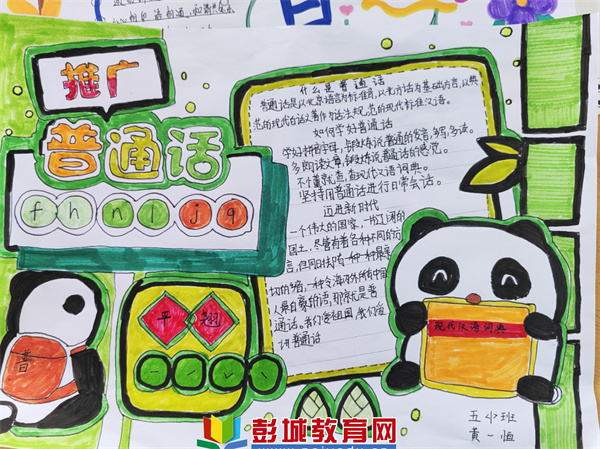 推广
普通话
f h n l j q
普
平 翘
- ˊ ˇ ˋ
什么是普通话
普通话是以北京语音为标准音,以北方话为基础方言,以典
范的现代白话文著作为语法规范的现代标准汉语。
如何学好普通话
学好拼音字母,
多朗读文章,锻炼说普通话的感觉。
不懂就查,查现代汉语词典。
坚持用普通话进行日常会话。
迈进新时代
一个伟大的国家,一片辽阔的
国土,尽管有着各种不同的方
言,但同时却有一种一种最亲
切的
人最自豪的语,那就是普
通话。我们爱祖国 我们爱
讲普通话
现代汉语词典
五(1)班
黄一恒
彭城教育网